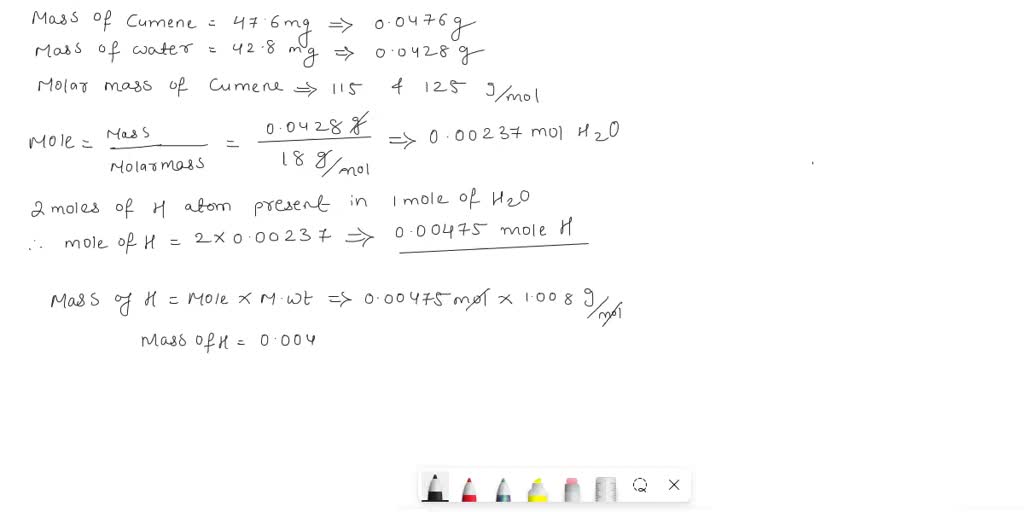 Mass of Cumene = 47.6mg ⇒ 0.0476g
Mass of water = 42.8 mg ⇒ 0.0428 g
Molar mass of Cumene ⇒ 115 & 125 g/mol
Mole = Mass / Molarmass = 0.0428 g / 18 g/mol ⇒ 0.00237 mol H2O
2 moles of H atom present in 1 mole of H2O
∴ mole of H = 2 × 0.00237 ⇒ 0.00475 mole H
Mass of H = Mole × M.wt ⇒ 0.00475 mol × 1.008 g/mol
Mass of H = 0.004